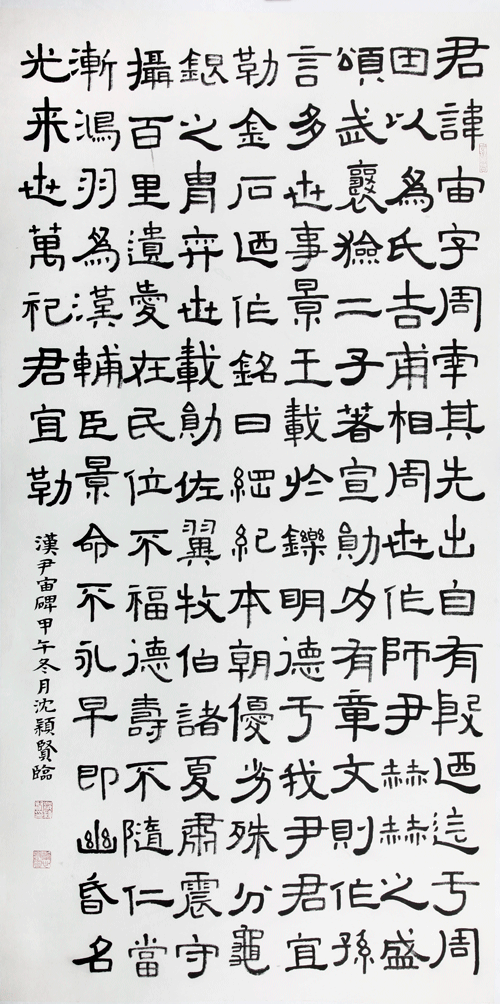 君諱宙字周南其先出自有殷迺迄于周
田以爲氏吉甫相周世作師尹赫赫之盛
頌武襄獫二子著宣勛乃有章文則作孫
言多世事景王載於鑠明德于我尹君宜
勒金石迺作銘曰綱紀本朝優劣殊分龜
銀之胄弈世載勛佐翼牧伯諸夏肅震守
攝百里遺愛在民位不福德壽不隨仁當
漸鴻羽爲漢輔臣景命不永早即幽昏名
光来世萬祀君宜勒
漢尹宙碑甲午冬月沈穎賢臨